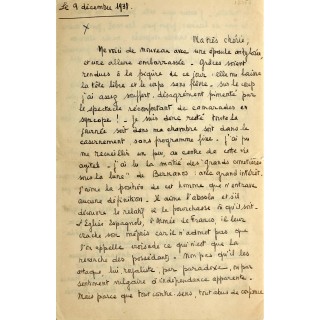 Le 9 décembre 1938.
Ma très chérie,
Me voici de nouveau avec une épaule ankylosée
et une allure embarrassée. Grâces soient
rendues à la piqûre de ce jour : elle me laisse
la tête libre et le corps sans fièvre. Sur le coup
j'ai assez souffert, désagrément pimenté par
le spectacle réconfortant de camarades en
syncope ! Je suis donc resté toute la
journée soit dans ma chambre soit dans le
casernement sans programme fixe. J'ai pu
me recueillir un peu, au centre de cette vie
agitée. J'ai lu la moitié des "grands cimetières
sous la lune" de Bernanos : avec grand intérêt.
J'aime la position de cet homme que n'entrave
aucune définition. Il aime l'absolu et s'il
découvre le relatif il le pourchasse où qu'il soit.
L'Église Espagnole, l'Armée de Franco : il leur
crache son mépris car il n'admet pas que
l'on appelle croisade ce qui n'est que la
revanche des possédants. Non pas qu'il les
attaque, lui, royaliste, par paradoxe, ou par
sentiment vulgaire d'indépendance apparente.
Mais parce que tout contre-sens, tout abus de